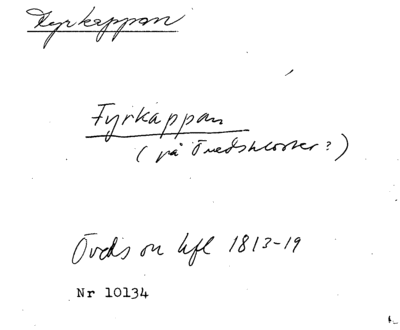 Fyrkappan
Fyrkappan
(på Övedskloster?)
Öveds sn hfl 1813-19
Nr 10134